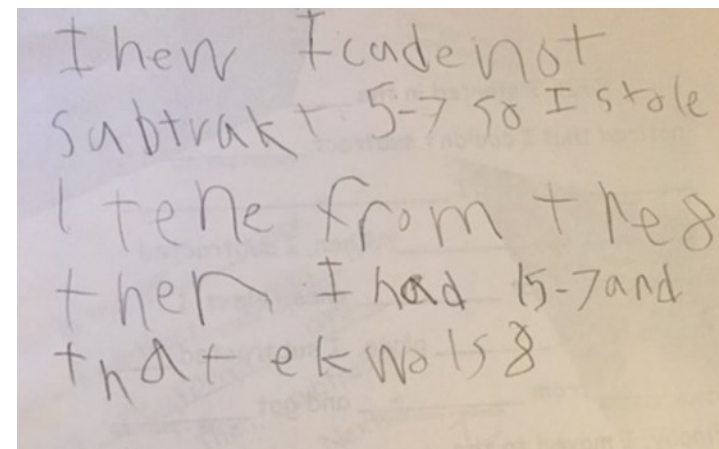 I hen I cude not
subtrakt 5-7 so I stole
1 tene from the 8
then I had 15-7 and
that ekwals 8